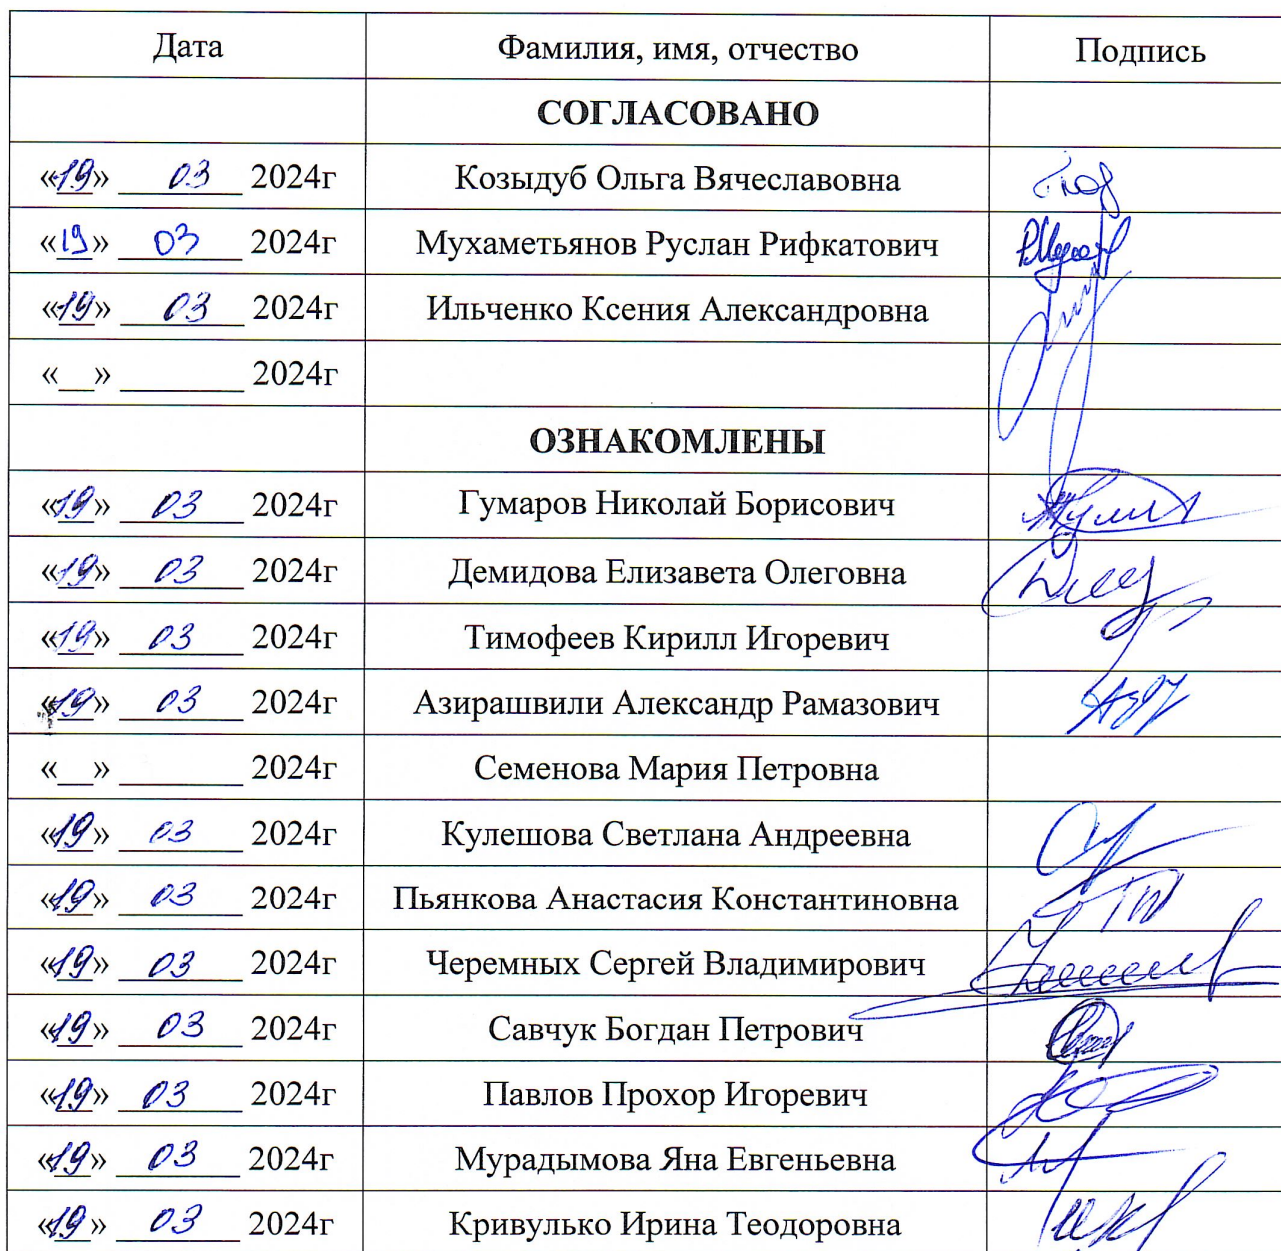 Дата Фамилия, имя, отчество Подпись
СОГЛАСОВАНО
«19» 03 2024г Козыдуб Ольга Вячеславовна
«19» 03 2024г Мухаметьянов Руслан Рифкатович
«19» 03 2024г Ильченко Ксения Александровна
«__» _______ 2024г
ОЗНАКОМЛЕНЫ
«19» 03 2024г Гумаров Николай Борисович
«19» 03 2024г Демидова Елизавета Олеговна
«19» 03 2024г Тимофеев Кирилл Игоревич
«19» 03 2024г Азирашвили Александр Рамазович
«__» _______ 2024г Семенова Мария Петровна
«19» 03 2024г Кулешова Светлана Андреевна
«19» 03 2024г Пьянкова Анастасия Константиновна
«19» 03 2024г Черемных Сергей Владимирович
«19» 03 2024г Савчук Богдан Петрович
«19» 03 2024г Павлов Прохор Игоревич
«19» 03 2024г Мурадымова Яна Евгеньевна
«19» 03 2024г Кривулько Ирина Теодоровна